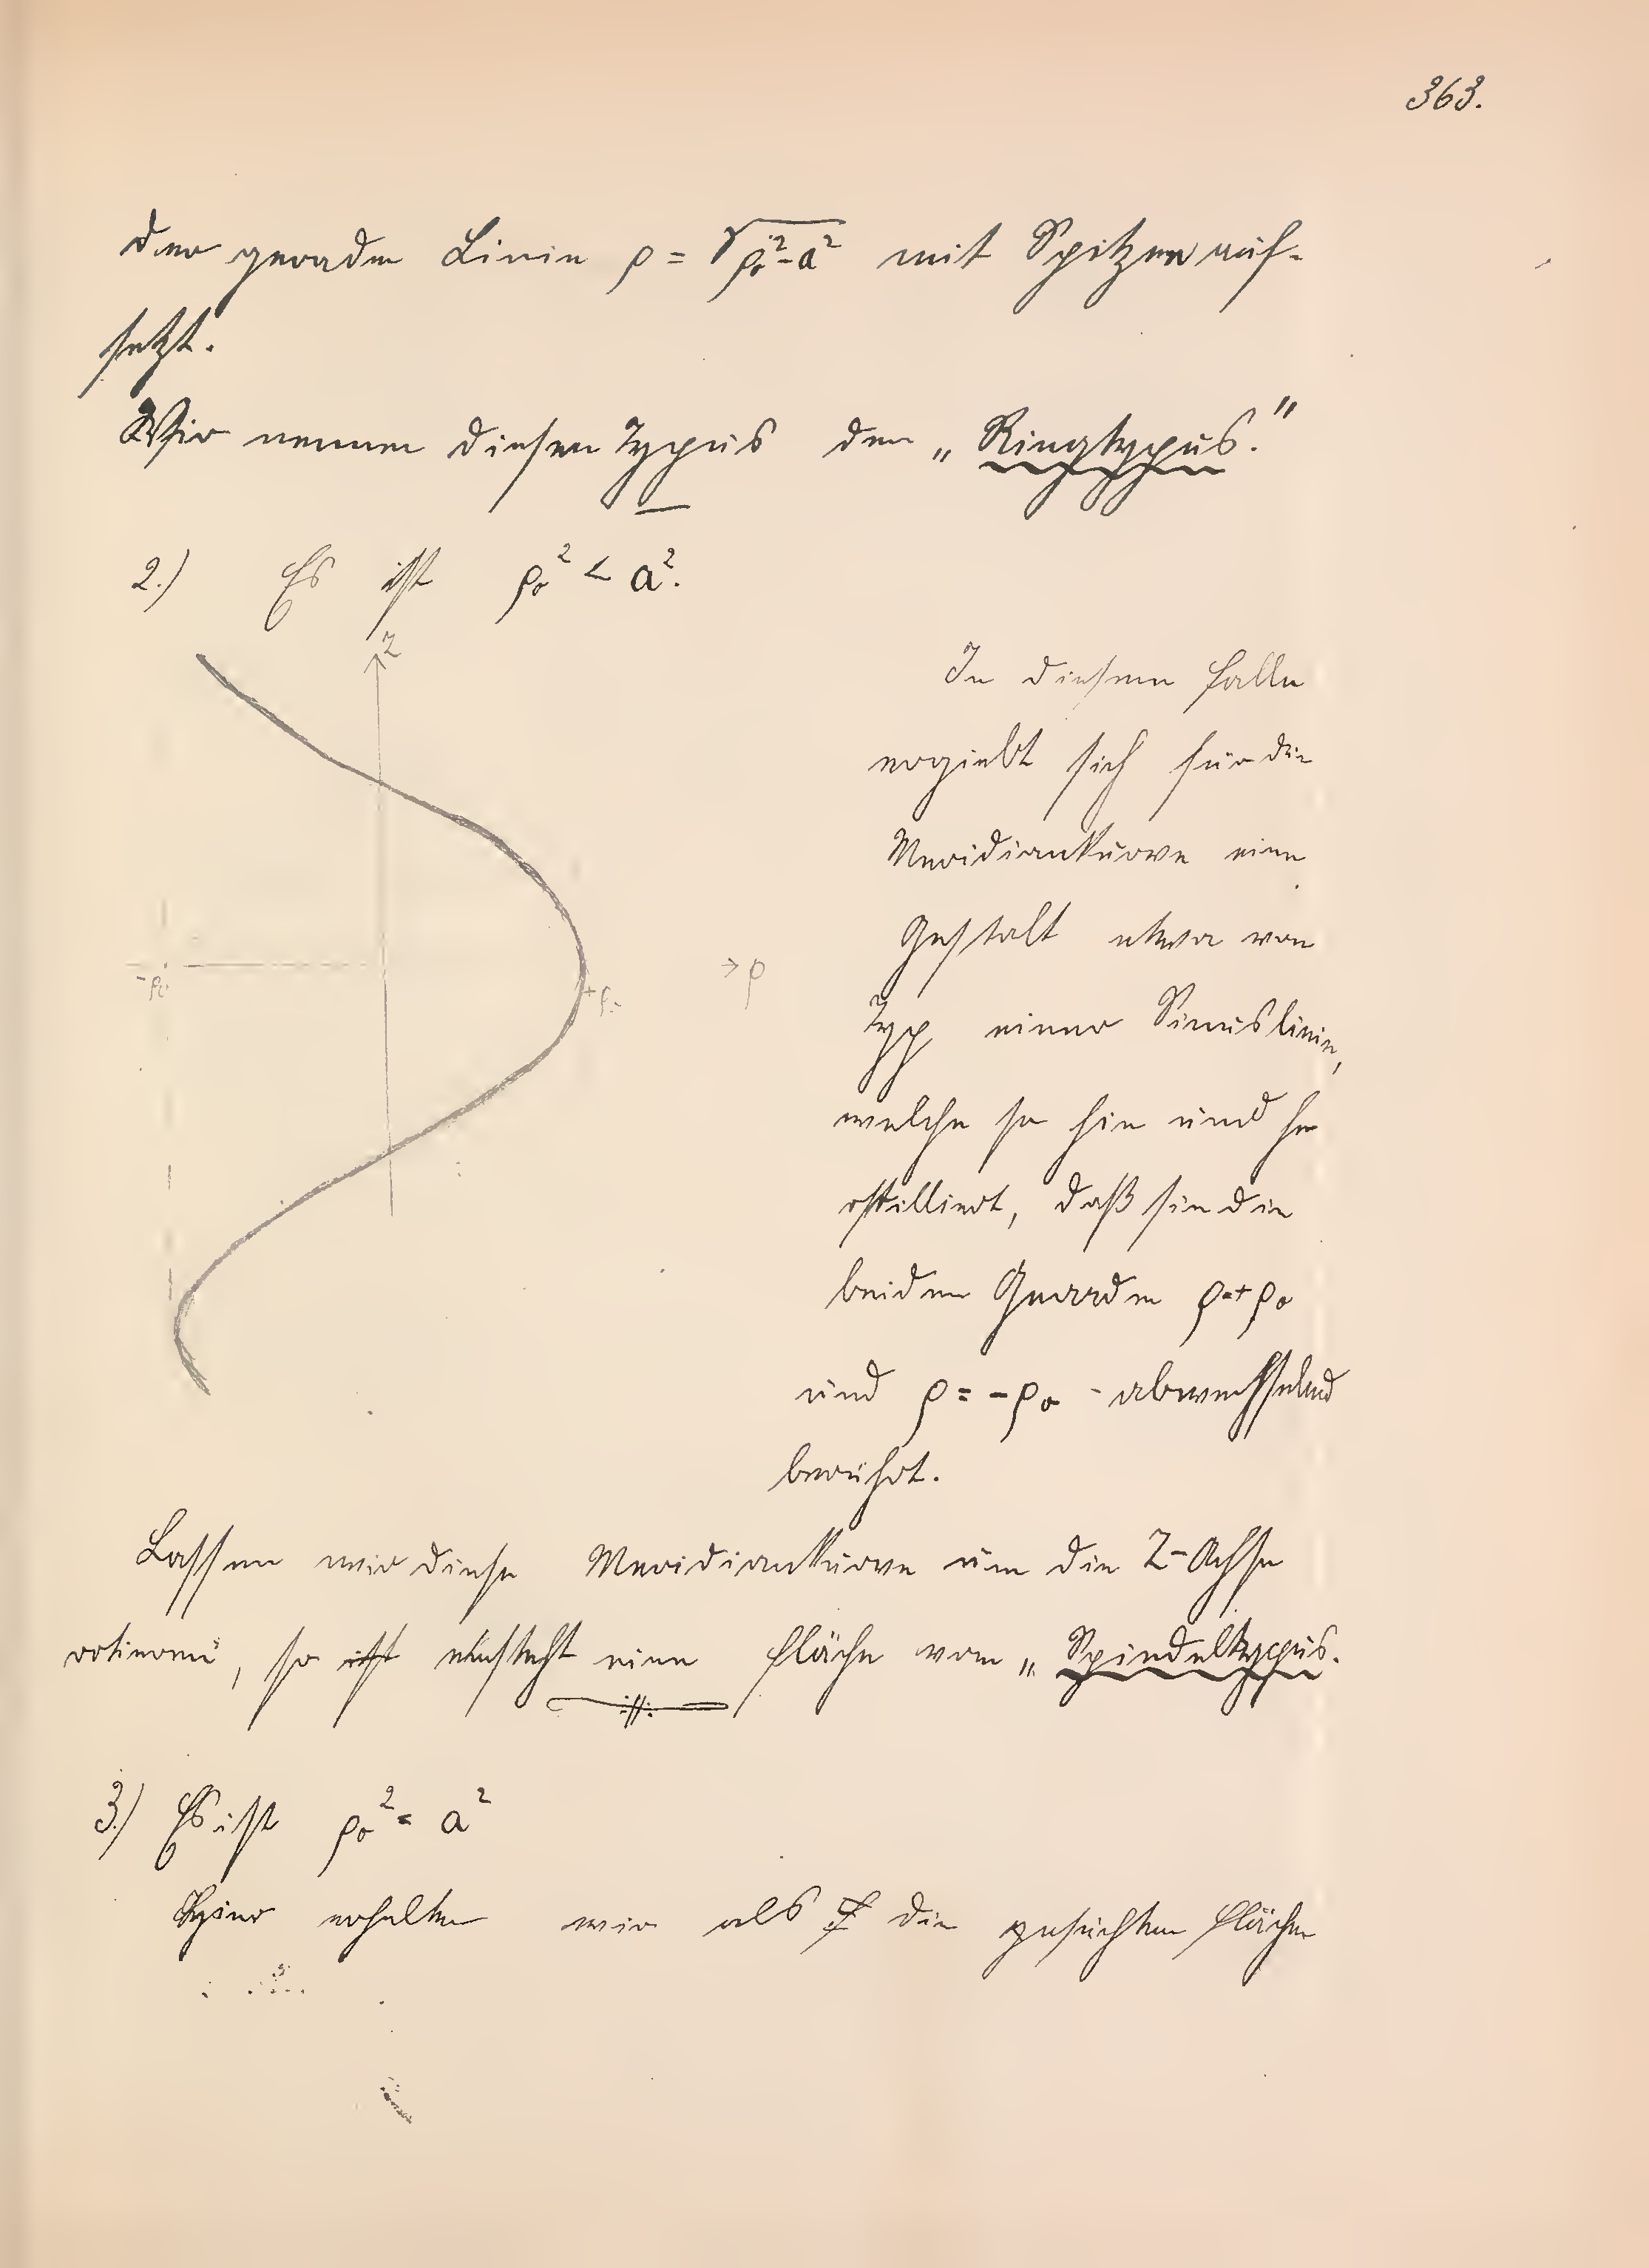 363.
der geraden Linie ρ = √ρ₀²-a² mit Spitzen auf-
setzt.
Wir nennen diesen Typus den „Ringtypus."
2.) Es ist ρ₀² < a².
z
In diesem Falle
ergiebt sich für die
Meridiankurve eine
Gestalt etwa vom
-ρ₀
+ρ₀
→ρ
Typ einer Sinuslinie,
welche so hin und her
oszilliert, daß sie die
beiden Geraden ρ=+ρ₀
und ρ = -ρ₀ abwechselnd
berührt.
Lassen wir diese Meridiankurve um die Z-Achse
rotieren, so entsteht eine Fläche vom „Spindeltypus.
3.) Es ist ρ₀² = a²
Hier erhalten wir als die gesuchten Flächen